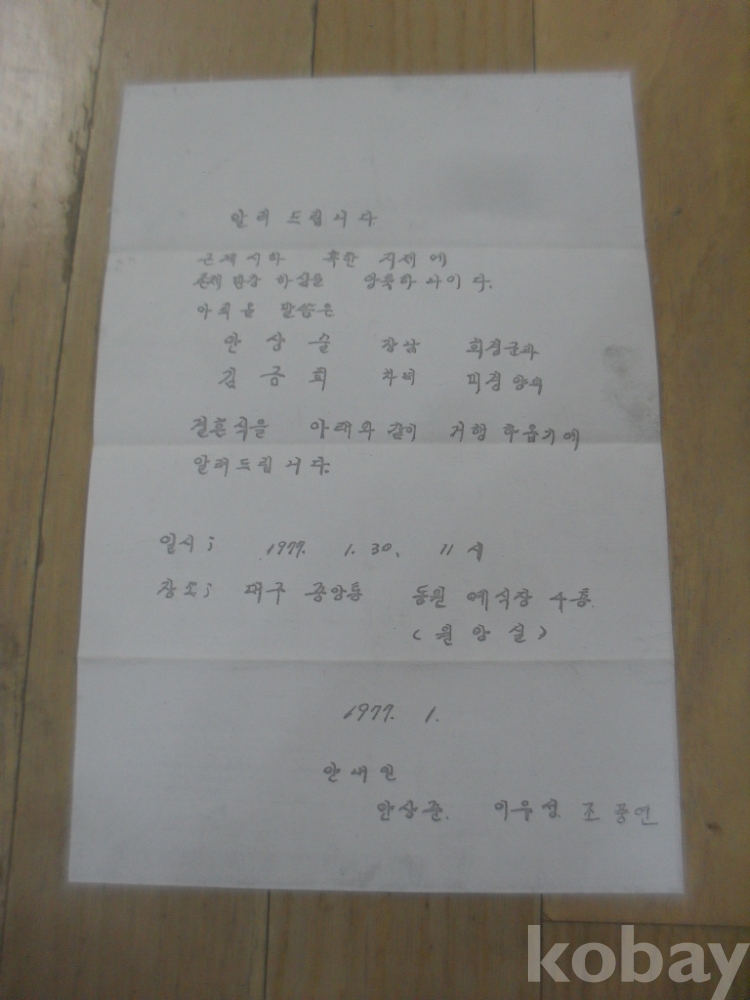 알려 드립니다
근제시하 혹한 지제에
존체 만강 하심을 앙축하나이다.
아뢰올 말씀은
안상술 장남 희정군과
김금희 차녀 미경양의
결혼식을 아래와 같이 거행 하옵기에
알려드립니다.
일시; 1977. 1. 30. 11시
장소; 대구 중앙통 동원 예식장 4층
(원앙실)
1977. 1.
안내인
안상준. 이우성 조풍연
kobay